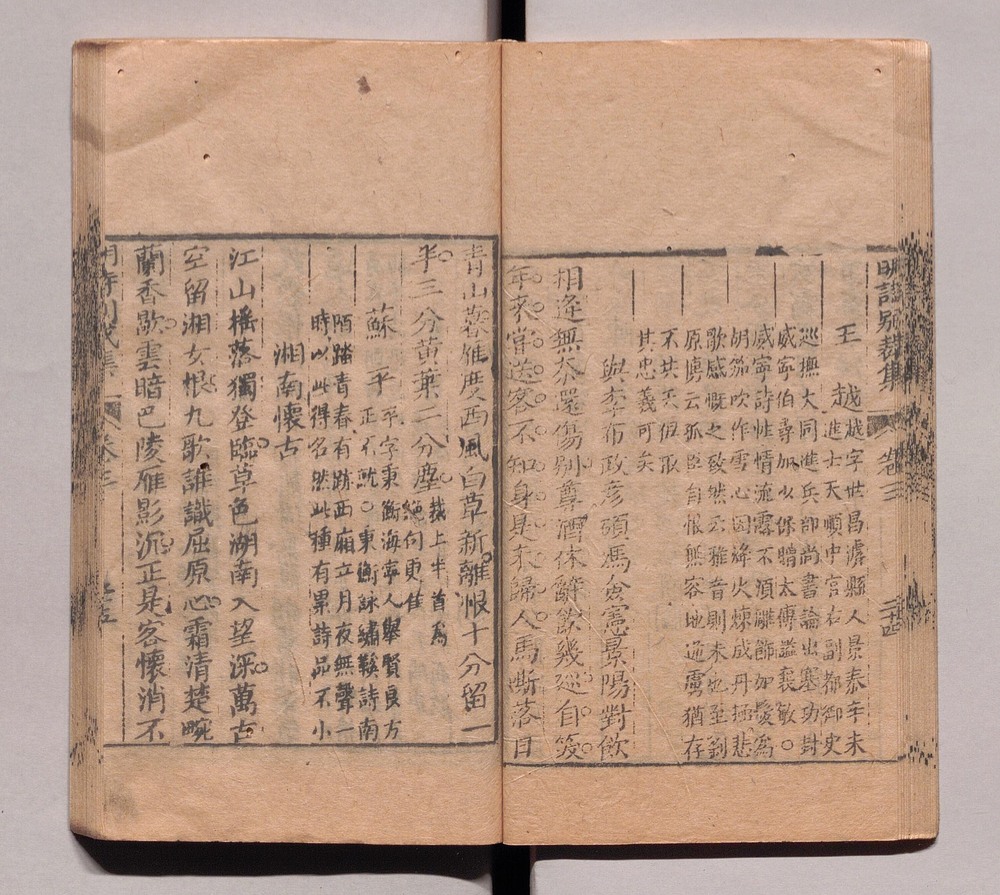 明詩別裁集 卷三 二十四
王 越 越字世昌濬縣人景泰辛未
進士天順中官右副都御史
巡撫大同進兵部尚書論出塞功封
威寧伯尋加少保贈太傅謚襄敏○
威寧詩性情流露不須雕飾如髮爲
胡笳吹作雪心因烽火煉成丹極悲
歌感慨之致然云雅音則未也至劉
原虜云孤臣自恨無容地逆虜猶存
不共天徂取
其忠義可矣
與李布政彥碩馮僉憲景陽對飲
相逢無奈還傷別尊酒休辭飲幾巡自笑
年來常送客不知身是未歸人馬嘶落日
青山暮雁度西風白草新離恨十分留一
半三分黃葉二分塵 截上半首爲
絕句更佳
蘇 平 平字秉衡海寧人舉賢良方
正不就○秉衡詠繡鞋詩南
陌踏青春有跡西廂立月夜無聲一
時以此得名然此種有累詩品不小
湘南懷古
江山搖落獨登臨草色湖南入望深萬古
空留湘女恨九歌誰識屈原心霜清楚畹
蘭香歇雲暗巴陵雁影沉正是客懷消不
明詩別裁集 卷三